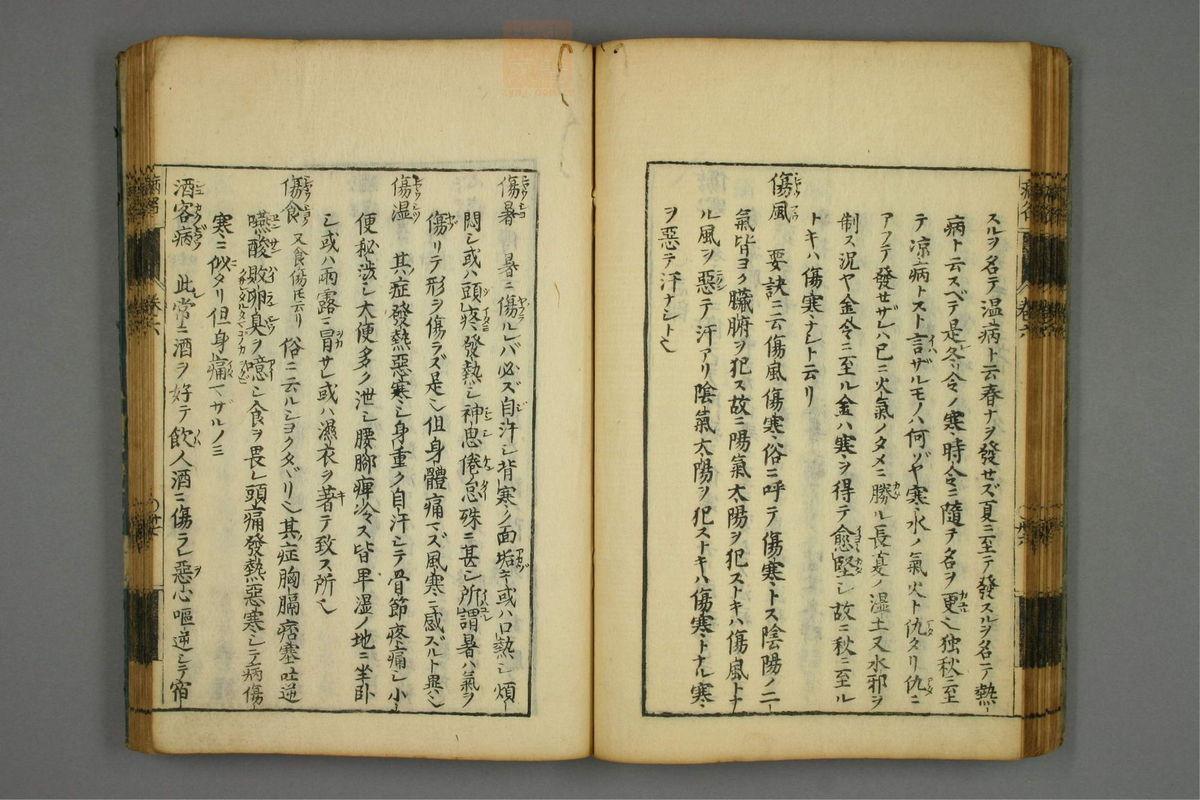 スルヲ名テ温病ト云春ナヲ發セズ夏ニ至テ發スルヲ名テ熱
病ト云スベテ是冬令ノ寒時令ニ隨テ名ヲ更ヘ独秋ニ至
テ涼病トスト言ザルモノハ何ゾヤ寒水ノ氣火ト仇タリ仇ニ
アフテ發せザレバ已ニ火氣ノタメニ勝ル長夏ノ湿土又水邪ヲ
制ス況ヤ金令ニ至ル金ハ寒ヲ得テ愈堅シ故ニ秋ニ至ル
トキハ傷寒ナシト云リ
傷風 要訣ニ云傷風傷寒俗ニ呼テ傷寒トス陰陽ノ二
氣皆ヨク臟腑ヲ犯ス故ニ陽氣太陽ヲ犯ストキハ傷風トナ
ル風ヲ惡テ汗アリ陰氣太陽ヲ犯ストキハ傷寒トナル寒
ヲ惡テ汗ナシト也
傷暑 暑ニ傷ルレバ必ズ自汗シ背寒ク面垢キ或ハ口熱シ煩
悶シ或ハ頭疼發熱シ神思倦怠殊ニ甚シ所謂暑ハ氣ヲ
傷リテ形ヲ傷ラズ是也但身體痛マズ風寒ニ感ズルト異也
傷湿 其症發熱惡寒シ身重ク自汗シテ骨節疼痛シ小
便秘渋シ大便多ク泄シ腰脚痺冷ス皆卑湿ノ地ニ坐卧
シ或ハ雨露ニ冒サレ或ハ濕衣ヲ著テ致ス所也
傷食 又食傷氏云リ 俗ニ云ルショクタヾリ也其症胸膈痞塞吐逆
嚥酸敗卵臭ヲ噫シ食ヲ畏レ頭痛發熱惡寒シテ病傷
寒ニ似タリ但身痛マザルノミ
酒客病 此常ニ酒ヲ好テ飲人酒ニ傷ラレ惡心嘔逆シテ宿